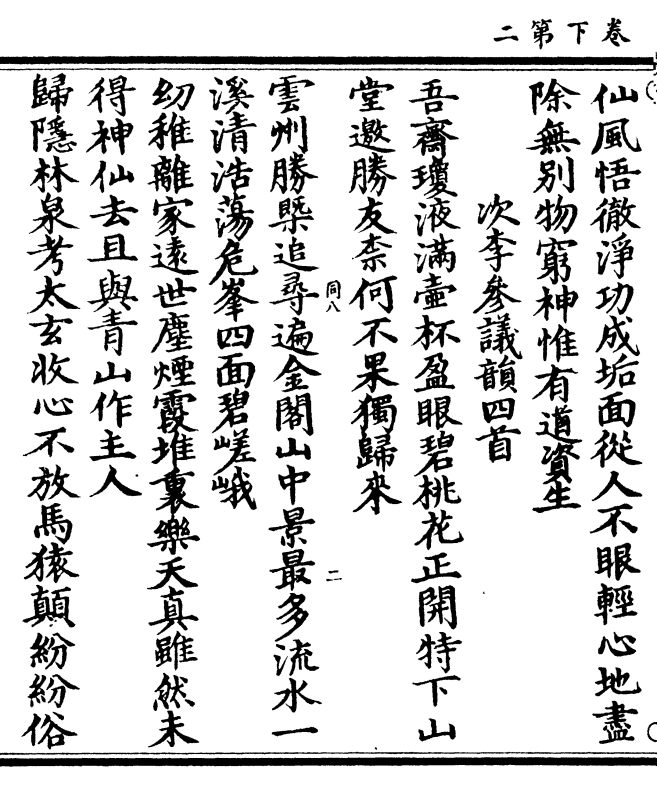 卷下第二
仙風悟徹淨功成垢面從人不眼輕心地盡
除無别物窮神惟有道資生
次李參議韻四首
吾齋瓊液滿壷杯盈眼碧桃花正開特下山
堂邀勝友柰何不果獨歸來
同八
二
雲州勝槩追尋遍金閣山中景最多流水一
溪清浩蕩危峯四面碧嵯峨
幼稚離家遠世塵煙霞堆裏樂天真雖然未
得神仙去且與青山作主人
歸隱林泉考太玄收心不放馬猿顛紛紛俗